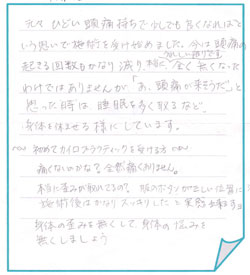 元々 ひどい頭痛持ちで少しでも良くなればと
いう思いで施術を受け始めました。今は頭痛の
起きる回数もかなり減り 全く無くなった
わけではありませんが、「あ、頭痛が来そうだ」と
思った時は、睡眠を多く取るなど、
身体を休ませる様にしています。
初めてカイロプラクティックを受ける方へ
痛くないのかな？全然痛くありません。
本当に歪みが取れてるの？ 服のボタンが正しい位置に
施術後はかなりスッキリしたと実感出来ます
身体の歪みを無くして、身体の悩みを
無くしましょう